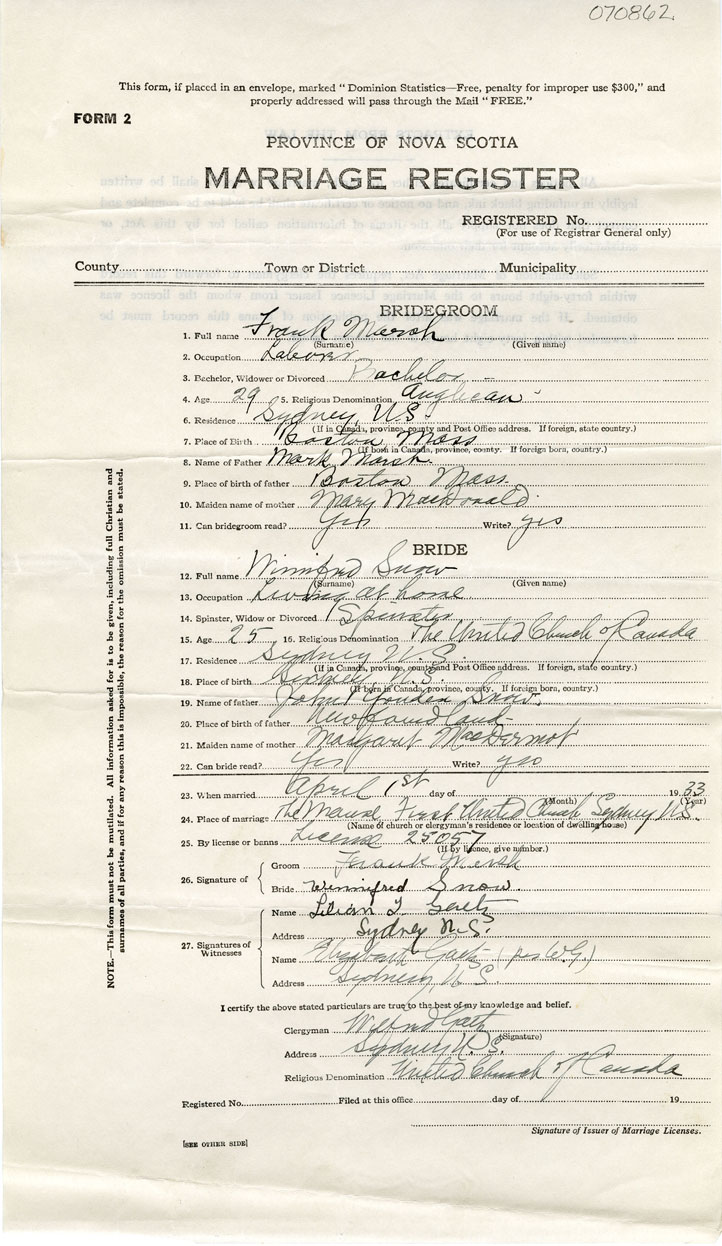 070862
This form, if placed in an envelope, marked "Dominion Statistics—Free, penalty for improper use $300," and
properly addressed will pass through the Mail "FREE."
FORM 2
PROVINCE OF NOVA SCOTIA
MARRIAGE REGISTER
REGISTERED No.
(For use of Registrar General only)
County Town or District Municipality
BRIDEGROOM
1. Full name Frank Marsh
(Surname) (Given name)
2. Occupation Laborer
3. Bachelor, Widower or Divorced Bachelor
4. Age 29 5. Religious Denomination Anglican
6. Residence Sydney, N.S.
(If in Canada, province, county and Post Office address. If foreign, state country.)
7. Place of Birth Boston Mass
(If born in Canada, province, county. If foreign born, country.)
8. Name of Father Mark Marsh
9. Place of birth of father Boston Mass.
10. Maiden name of mother Mary MacDonald
11. Can bridegroom read? Yes Write? yes
BRIDE
12. Full name Winnifred Snow
(Surname) (Given name)
13. Occupation Living at home
14. Spinster, Widow or Divorced Spinster
15. Age 25 16. Religious Denomination The United Church of Canada
17. Residence Sydney N.S.
(If in Canada, province, county and Post Office address. If foreign, state country.)
18. Place of birth Sydney N.S.
(If born in Canada, province, county. If foreign born, country.)
19. Name of father John Snow
20. Place of birth of father Newfoundland
21. Maiden name of mother Margaret MacDermot
22. Can bride read? Yes Write? yes
23. When married April 1st day of 1933
(Month) (Year)
24. Place of marriage The Manse First United Church Sydney N.S.
(Name of church or clergyman's residence or location of dwelling house)
25. By license or banns License 25057
(If by licence, give number.)
26. Signature of
Groom Frank Marsh
Bride Winnifred Snow
27. Signatures of
Witnesses
Name Lilian I Gaetz
Address Sydney N.S.
Name Elizabeth Gaetz (per W.G.)
Address Sydney, N.S.
I certify the above stated particulars are true to the best of my knowledge and belief.
Clergyman Wilfred Gaetz
(Signature)
Address Sydney N.S.
Religious Denomination United Church of Canada
Registered No. Filed at this office day of 19
Signature of Issuer of Marriage Licenses.
[SEE OTHER SIDE]
NOTE.—This form must not be mutilated. All information asked for is to be given, including full Christian and
surnames of all parties, and if for any reason this is impossible, the reason for the omission must be stated.